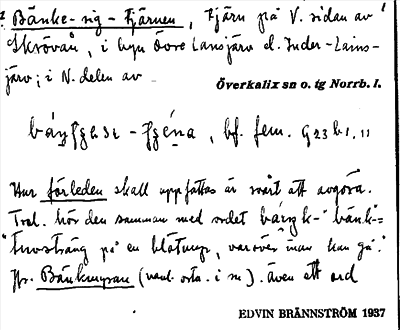 Bänke-sig-tjärnen, tjärn på V. sidan av
Skrövån, i byn Övre Lansjärv el. Inder-Lains-
järv; i N. delen av
Överkalix sn o. tg Norrb. l.
bf. fem. G23 b1, 11
Hur förleden skall uppfattas är svårt att avgöra.
Trol. hör den samman med ordet "bänk"=
på en blötmyr, varöver man kan gå."
Jfr. Bänkmyran (vanl. orta. i sn). även ett ord
EDVIN BRÄNNSTRÖM 1937